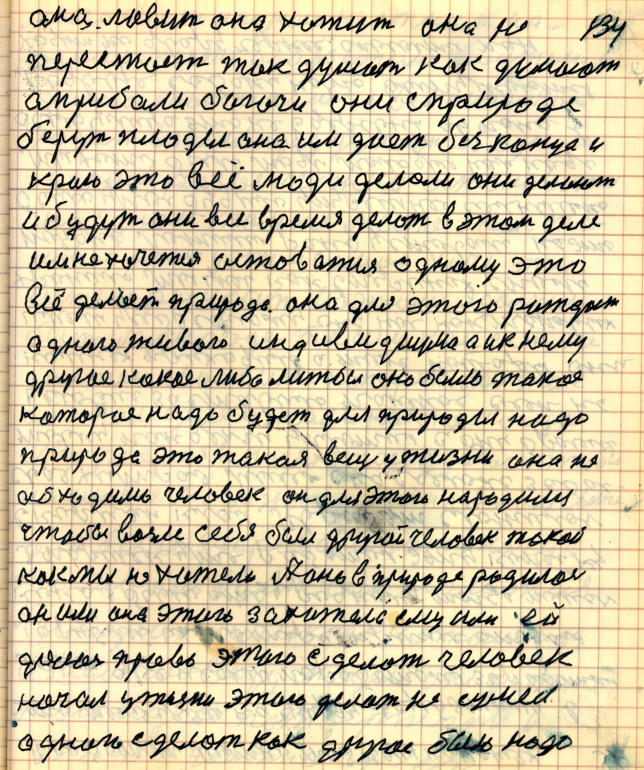 она ловит она хотит она не 134
перестает так думат как думают
а прибали богачи они с природе
берут плоды она им дает без конца и
краю это всё люди делали они делают
и будут они все время делат в этом деле
им не хочется оставатся одному это
всё делает природа. она для этого рождает
одного живого индивидиума а и к нему
другое какое либо литьы оно было такое
которое надо будет для природы надо
природа это такая вещ у жизни она не
обходима человек он для этого народился
чтобы возле себя был другой человек такой
как мы не хотели А оно в природе родилос
он или она этого захотела ему или ей
право этого сделат человек
начал у жизни этого делат не сумел
одного сделат как другое было надо